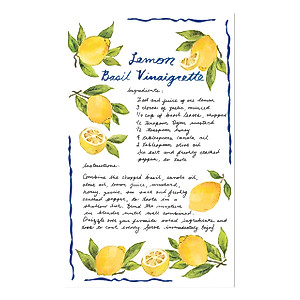 Lemon
Basil Vinaigrette
Ingredients:
Zest and juice of one lemon
3 cloves of garlic, minced
1/4 cup of basil leaves, chopped
1/2 teaspoon Dijon mustard
1/2 teaspoon honey
4 tablespoons canola oil
2 tablespoons olive oil
Sea salt and freshly cracked
pepper, to taste
Instructions:
Combine the chopped basil, canola oil,
olive oil, lemon juice, mustard,
honey, garlic, sea salt and freshly
cracked pepper, to taste in a
shallow dish. Blend the mixture
in blender until well combined.
Drizzle over your favorite salad ingredients and
toss to coat evenly. Serve immediately. Enjoy!